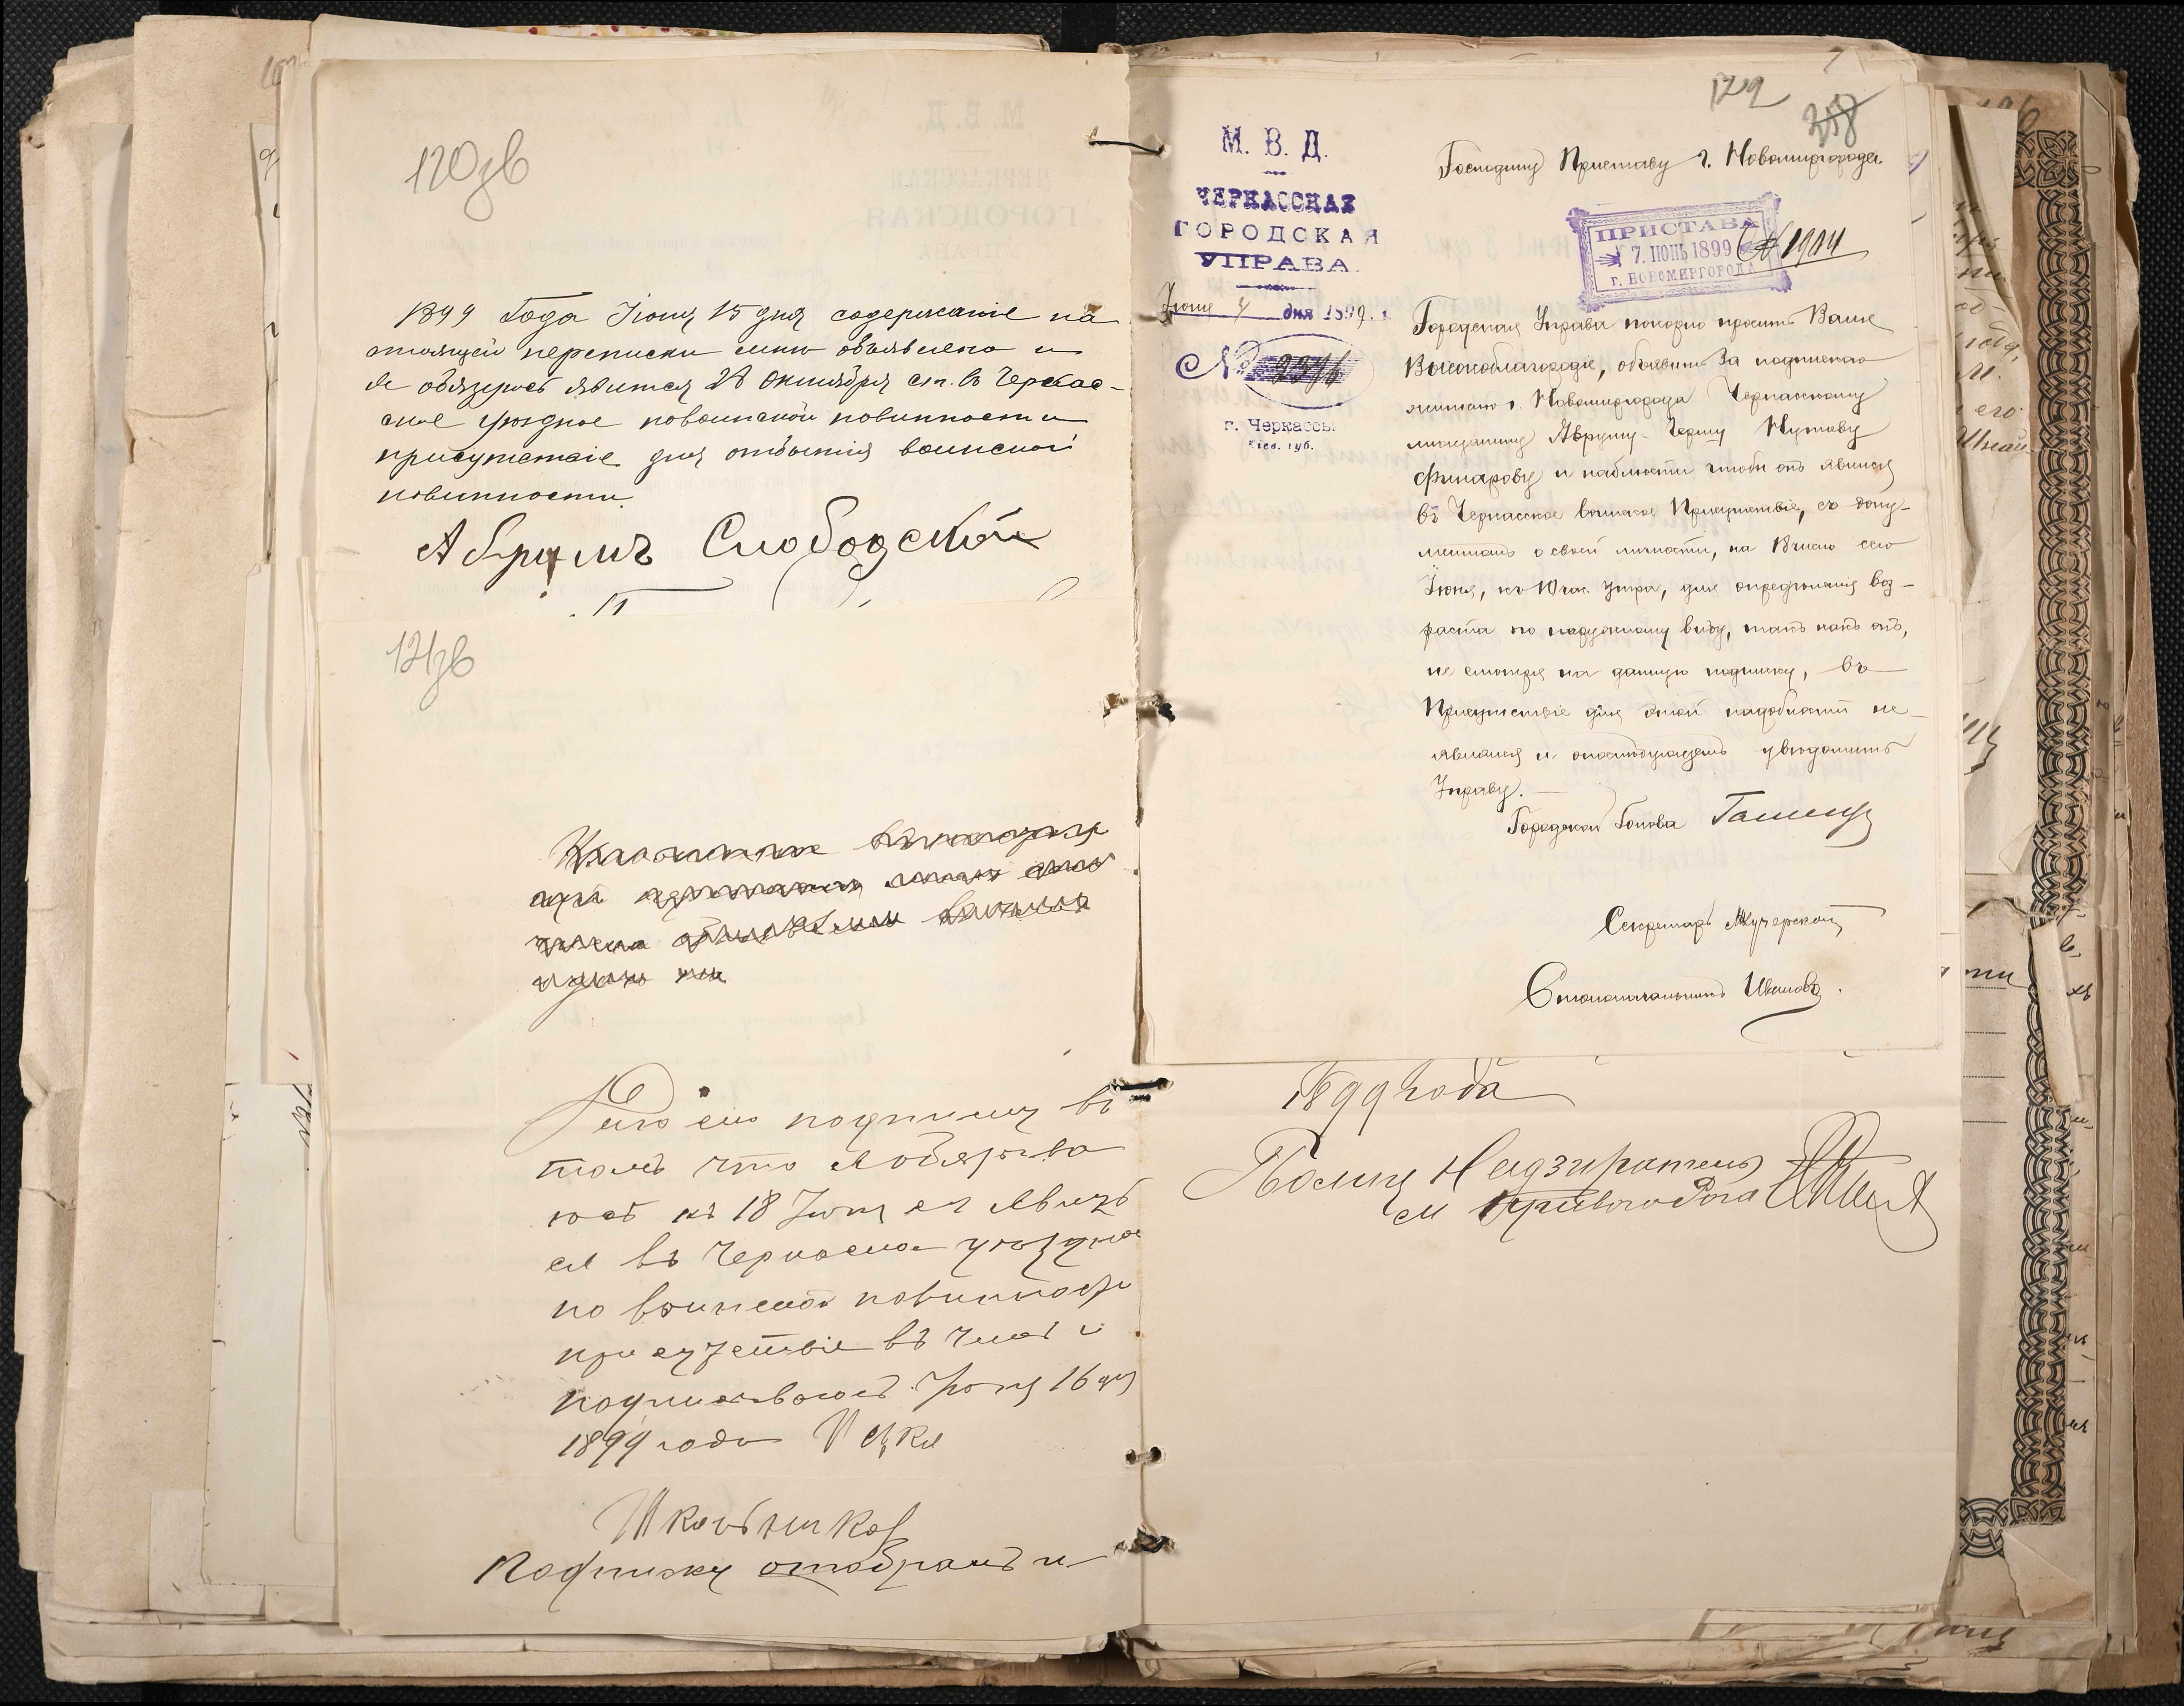 120зв
1899 Года Іюня 15 дня содержаніе на
стоящей переписки мнѣ объявлено и
я обязуюсь явится 28 Октября с.г. въ Черкас-
ское уѣздное по воинской повинности
присутствіе для отбытія воинской
повинности.
Абрумъ Слободской
121зв
Даю сію подписку въ
томъ что я обязува
юсь къ 18 Іюня с г явить
ся въ Черкаское уѣздное
по воинской повинности
присутствіе въ чемъ и
подписываюсь Іюня 16 дня
1899 года
Школьников
Подписку отобралъ и
122
258
М. В. Д.
ЧЕРКАССКАЯ
ГОРОДСКАЯ
УПРАВА.
Іюня 4 дня 1899 г.
№ 2376
г. Черкассы
Кіев. губ.
Господину Приставу г. Новомиргорода
ПРИСТАВА
7. ІЮНЬ 1899
г. НОВОМИРГОРОДА
№ 1914
Городская Управа покорно проситъ Ваше
Высокоблагородіе, объявить за подпискою
жителю г. Новомиргорода Черкасскому
мѣщанину Авруму-Гершу Нутову
и наблюсти чтобы онъ явился
въ Черкасское воинское Присутствіе, съ доку-
ментомъ о своей личности, на 18 число сего
Іюня, къ 10 час. утра, для опредѣленія воз-
раста по наружному виду, такъ какъ онъ,
не смотря на данную подписку, въ
Присутствіе для этой надобности не
являлся и о послѣдующемъ увѣдомить
Управу.
Городской Голова
Секретарь
Столоначальникъ Ивановъ.
1899 года
Полиц Надзиратель
м Кривого Рога